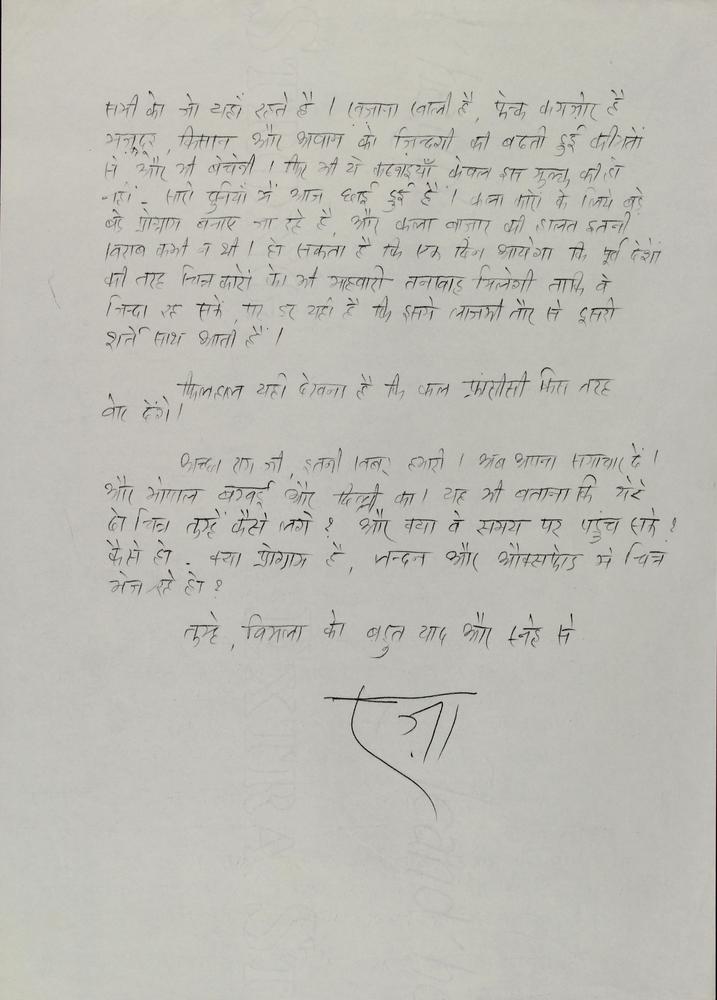 सभी को जो यहाँ रहते हैं । खज़ाना खाली है, फ्रेन्क कमज़ोर है
मजदूर, किसान और अवाम को ज़िन्दगी की बढती हुई कीमतों
से और भी बेचेनी । फिर भी ये कठनाइयाँ केवल इस मुल्क की ही
नहीं - सारी दुनियाँ में आज छाई हुई हैं । कला कारों के लिये बड़े
बड़े प्रोग्राम बनाए जा रहे हैं, और कला बाजार की हालत इतनी
खराब कभी न थी । हो सकता है कि एक दिन आयेगा कि पूर्व देशों
की तरह चित्रकारों को भी माहवारी तनखाह मिलेगी ताकि वे
ज़िन्दा रह सकें, पर डर यही है कि इसमें लाजमी तौर से दूसरी
शर्तें साथ आती हैं ।
फिलहाल यही देखना है कि कल फ्रांसीसी किस तरह
वोट देंगे ।
अच्छा राम जी, इतनी खबर हमारी । अब अपना समाचार दें ।
और भोपाल बम्बई और दिल्ली का । यह भी बताना कि मेरे
दो चित्र तुम्हें कैसे लगे ? और क्या वे समय पर पहुंच सके ?
कैसे हो - क्या प्रोग्राम है, लन्दन और औक्सफोर्ड में चित्र
भेज रहे हो ?
तुम्हे, विमला को बहुत याद और स्नेह से
रज़ा